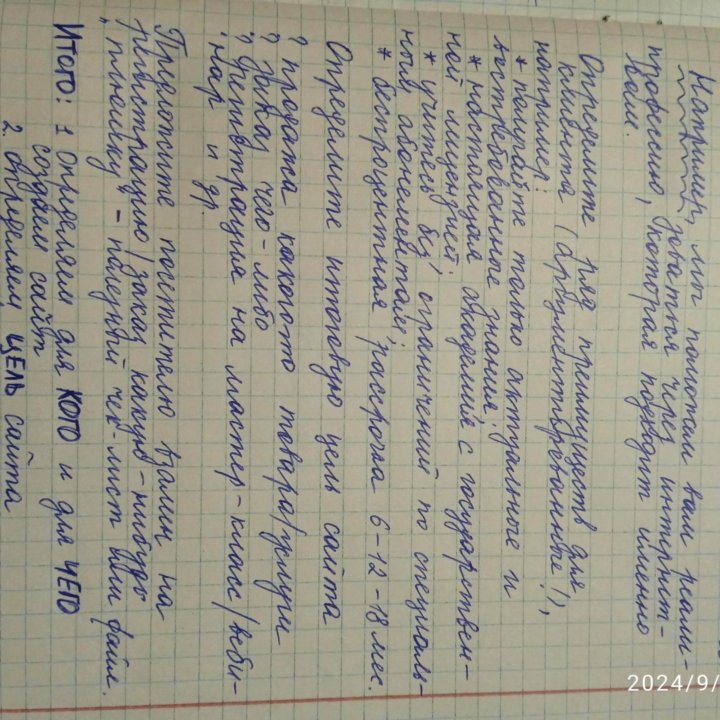 Например, мы поможем вам реали-
зоваться через интернет-
профессию, которая подходит именно
вам.
Определите ряд преимуществ для
клиента (аргументированные!),
например:
* получайте только актуальные и
востребованные знания;
* настоящая академия с государствен-
ной лицензией;
* учитесь без ограничений по специаль-
ным абонементам;
* беспроцентная рассрочка 6-12-18 мес.
Определите итоговую цель сайта
? продажа какого-то товара/услуги
? заказ чего-либо
? регистрация на мастер-класс/веби-
нар и др.
Предложите посетителю взамен на
регистрацию/заказ какую-нибудь
"плюшку" - полезный чек-лист или файл.
ИТОГО: 1 Определяем для КОГО и для ЧЕГО
создаем сайт
2. Определяем ЦЕЛЬ сайта
2024/9/